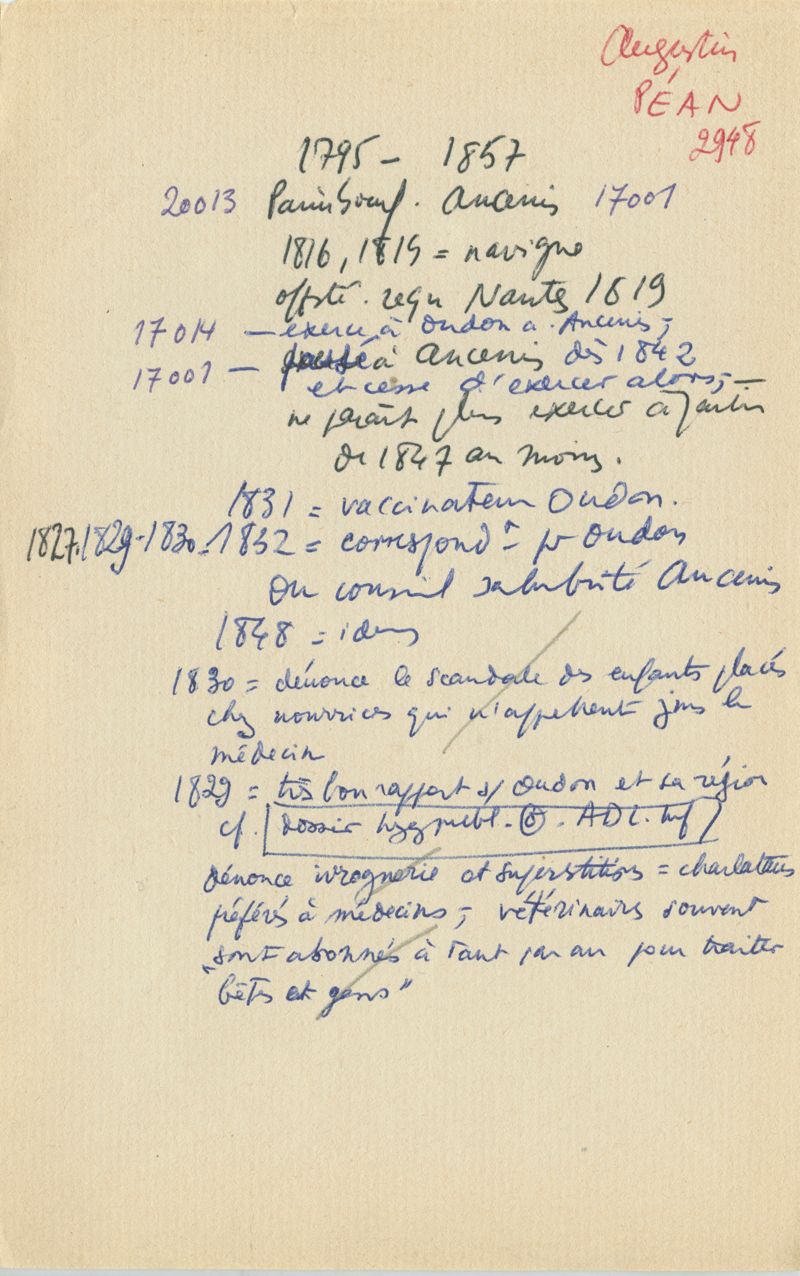 Augustin
PÉAN
2948
1795 - 1857
20013 Paimboeuf. Ancenis 17001
1816, 1819 = navigue
offsté. reçu Nantes 1819
17014 — exerce à Oudon a. Ancenis,-
17001 — à Ancenis dès 1842
et cesse d'exercer alors,-
ne paraît plus exercer à partir
de 1847 au moins.
1831 = vaccinateur Oudon.
1827.1829-1830-1832 = correspondt pr Oudon
du conseil salubrité Ancenis
1848 = idem
1830 = dénonce le scandale des enfants placés
chez nourrices qui n'appellent pas le
médecin
1829 = très bon rapport s/ Oudon et sa région
cf. dossier hyg publ. ADL.
dénonce ivrognerie et superstitions = charlatans
préférés à médecins,- vétérinaires souvent
"sont abonnés à tant par an pour traiter
bêtes et gens"